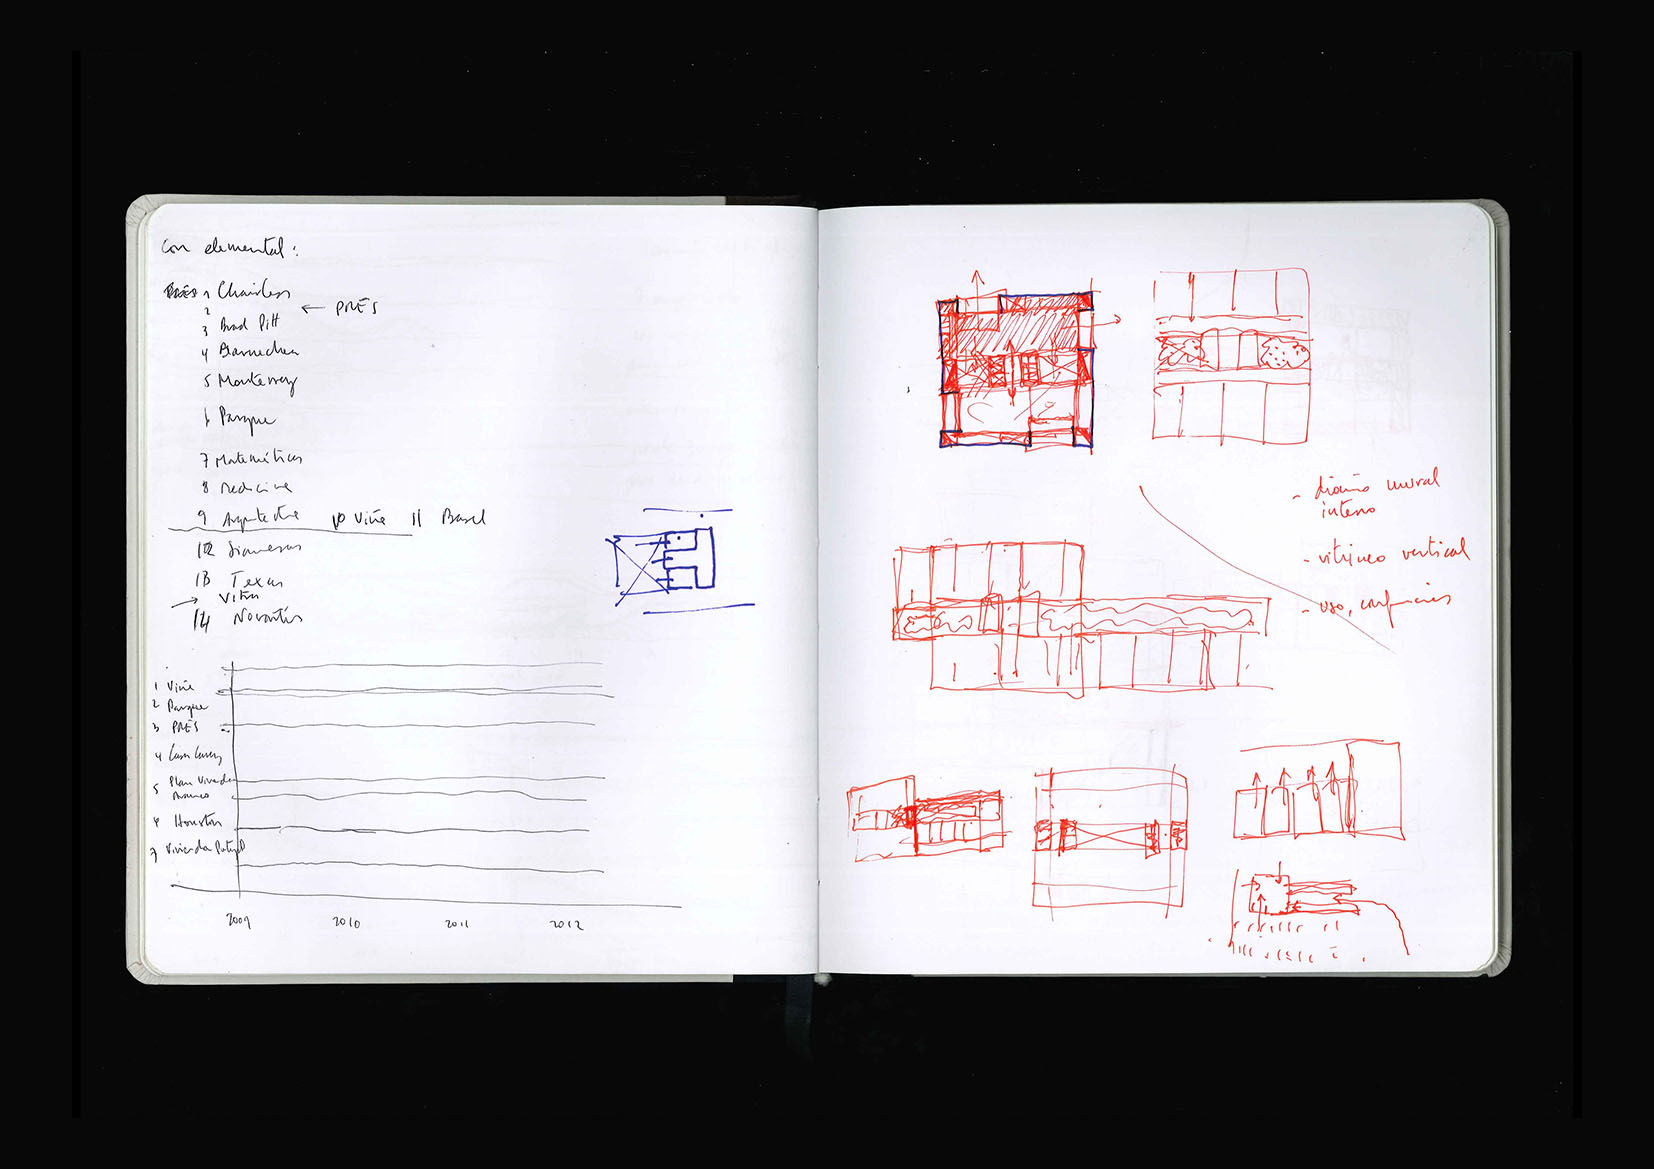 Con elemental:
1 Chairless
2 ← PRES
3 Brad Pitt
4 Barnechea
5 Monterrey
6 Parque
7 Matemáticas
8 Medicina
9 Arquitectura 10 Viña 11 Basel
12 Siamesas
13 Texas
→ Vitra
14 Novartis
1 Viña
2 Parque
3 PRES
4
5 Plan Vivienda
Arauco
6 Houston
7 Vivienda
2009 2010 2011 2012
- diario mural
interno
- vitrineo vertical
- uso,